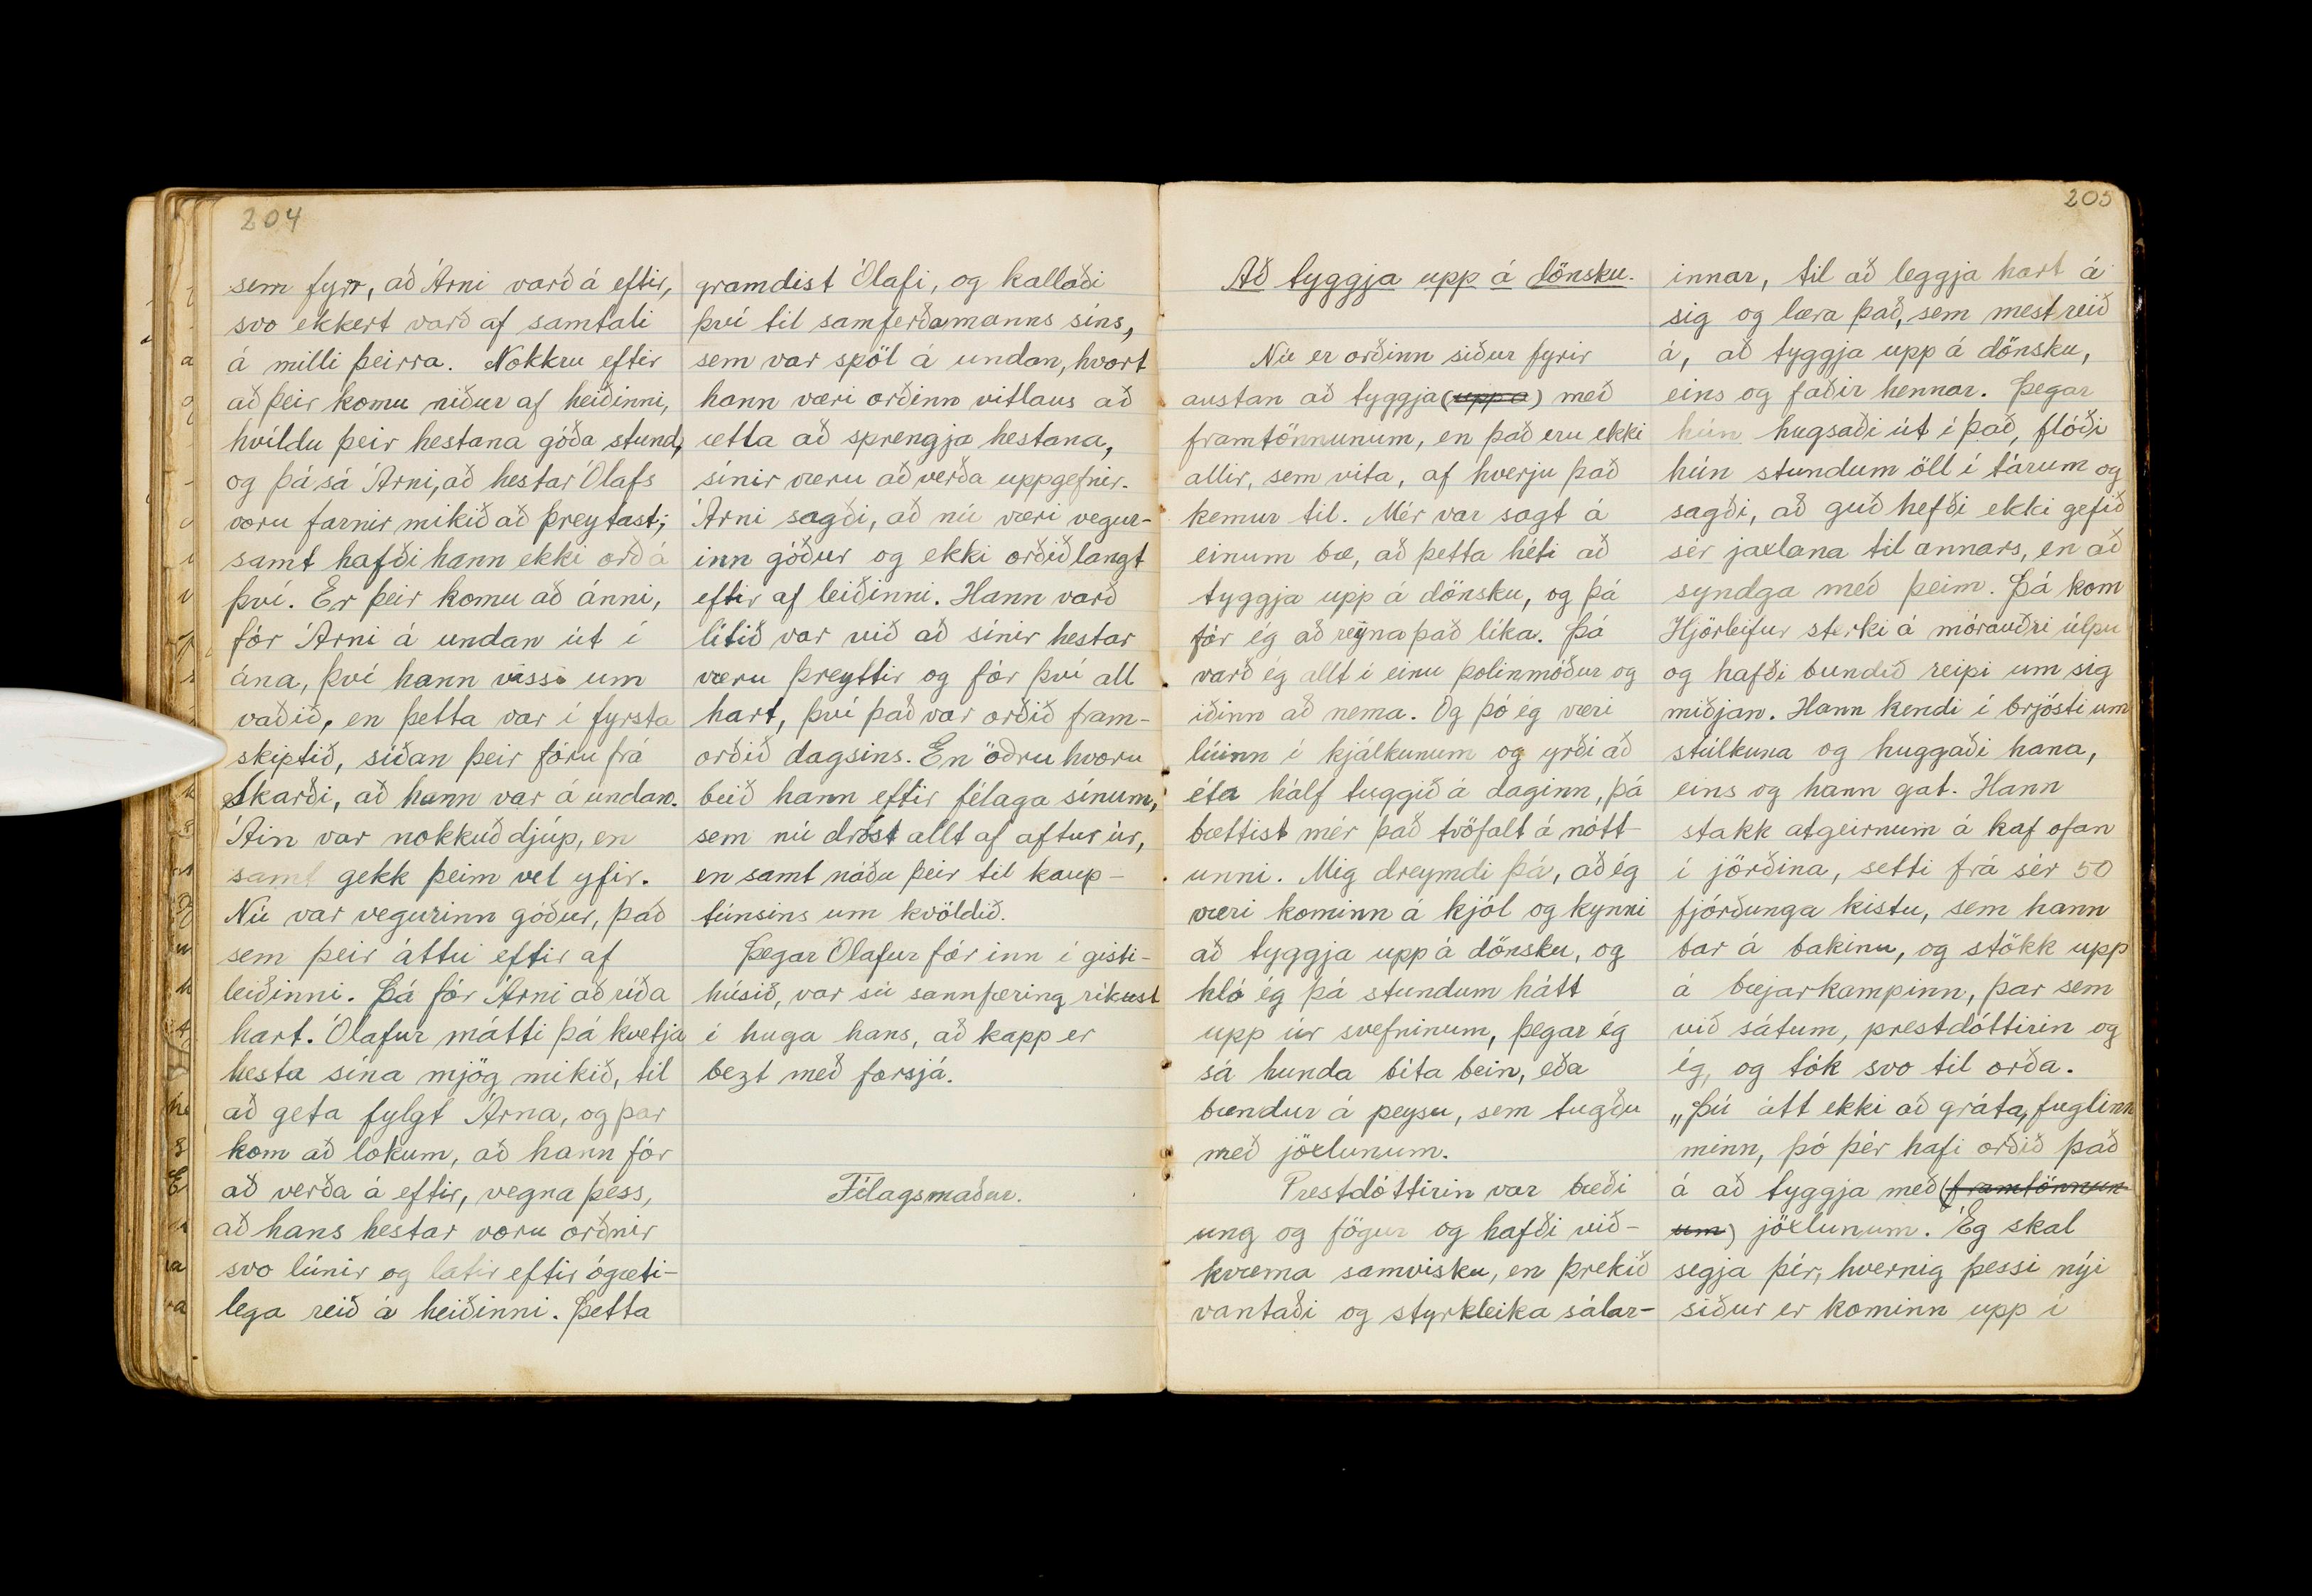 204
sem fyrr, að Árni varð á eftir,
svo ekkert varð af samtali
á milli þeirra. Nokkru eftir
að þeir komu niður af heiðinni,
hvíldu þeir hestana góða stund,
og þá sá Árni, að hestar Ólafs
voru farnir mikið að þreytast;
samt hafði hann ekki orð á
því. Er þeir komu að ánni,
fór Árni á undan út í
ána, því hann vissi um
vaðið, en þetta var í fyrsta
skiptið, síðan þeir fóru frá
Skarði, að hann var á undan.
Áin var nokkuð djúp, en
samt gekk þeim vel yfir.
Nú var vegurinn góður, það
sem þeir áttu eftir af
leiðinni. Þá fór Árni að ríða
hart. Ólafur mátti þá hvetja
hesta sína mjög mikið, til
að geta fylgt Árna, og þar
kom að lokum, að hann fór
að verða á eftir, vegna þess,
að hans hestar voru orðnir
svo lúnir og latir eftir ógæti-
lega reið á heiðinni. Þetta
gramdist Ólafi, og kallaði
því til samferðamanns síns,
sem var spöl á undan, hvort
hann væri orðinn vitlaus að
ætla að sprengja hestana,
sínir væru að verða uppgefnir.
Árni sagði, að nú væri vegur-
inn góður og ekki orðið langt
eftir af leiðinni. Hann varð
lítið var við að sínir hestar
væru þreyttir og fór því all
hart, því það var orðið fram-
orðið dagsins. En öðru hvoru
beið hann eftir félaga sínum,
sem nú dróst allt af aftur úr,
en samt náðu þeir til kaup-
túnsins um kvöldið.
Þegar Ólafur fór inn í gisti-
húsið, var sú sannfæring ríkust
í huga hans, að kapp er
bezt með forsjá.
Félagsmaður.
205
Að tyggja upp á dönsku.
Nú er orðinn siður fyrir
austan að tyggja (upp á) með
framtönnunum, en það eru ekki
allir, sem vita, af hverju það
kemur til. Mér var sagt á
einum bæ, að þetta héti að
tyggja upp á dönsku, og þá
fór ég að reyna það líka. Þá
varð ég allt í einu þolinmóður og
iðinn að nema. Og þó ég væri
lúinn í kjálkunum og yrði að
éta hálf tuggið á daginn, þá
bættist mér það tvöfalt á nótt-
unni. Mig dreymdi þá, að ég
væri kominn á kjól og kynni
að tyggja upp á dönsku, og
hló ég þá stundum hátt
upp úr svefninum, þegar ég
sá hunda bíta bein, eða
bændur á peysu, sem tugðu
með jöxlunum.
Prestdóttirin var bæði
ung og fögur og hafði við-
kvæma samvisku, en þrekið
vantaði og styrkleika sálar-
innar, til að leggja hart á
sig og læra það, sem mest reið
á, að tyggja upp á dönsku,
eins og faðir hennar. Þegar
hún hugsaði út í það, flóði
hún stundum öll í tárum og
sagði, að guð hefði ekki gefið
sér jaxlana til annars, en að
syndga með þeim. Þá kom
Hjörleifur sterki á mórauðri úlpu
og hafði bundið reipi um sig
miðjan. Hann kendi í brjósti um
stúlkuna og huggaði hana,
eins og hann gat. Hann
stakk atgeirnum á kaf ofan
í jörðina, setti frá sér 50
fjórðunga kistu, sem hann
bar á bakinu, og stökk upp
á bæjarkampinn, þar sem
við sátum, prestdóttirin og
ég, og tók svo til orða.
„Þú átt ekki að gráta, fuglinn
minn, þó þér hafi orðið það
á að tyggja með (framtönnun-
um) jöxlunum. Ég skal
segja þér, hvernig þessi nýi
siður er kominn upp í